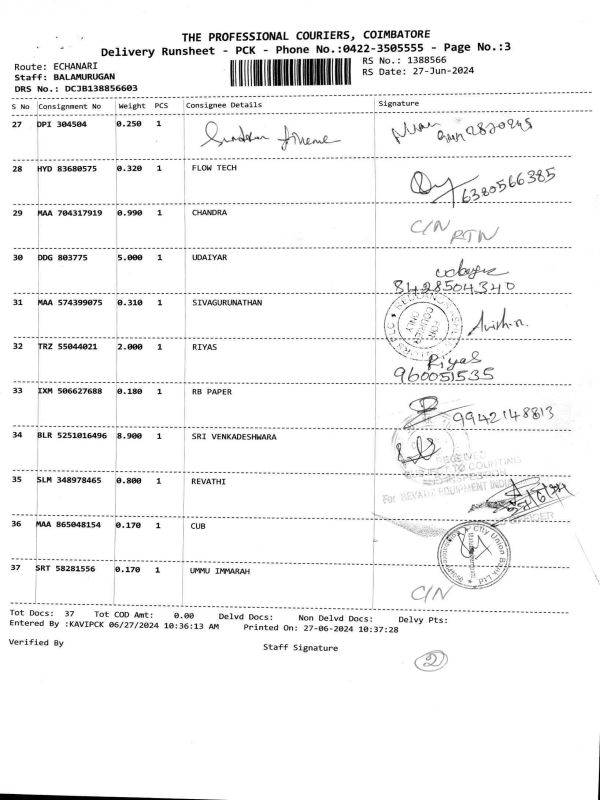 THE PROFESSIONAL COURIERS, COIMBATORE
Delivery Runsheet - PCK - Phone No.:0422-3505555 - Page No.:3
Route: ECHANARI RS No.: 1388566
Staff: BALAMURUGAN RS Date: 27-Jun-2024
DRS No.: DCJB138856603
S No Consignment No Weight PCS Consignee Details Signature
27 DPI 304504 0.250 1
28 HYD 83680575 0.320 1 FLOW TECH
6380566385
29 MAA 704317919 0.990 1 CHANDRA C/N
RTN
30 DDG 803775 5.000 1 UDAIYAR
8428504340
31 MAA 574399075 0.310 1 SIVAGURUNATHAN
FOR COURIER ONLY
32 TRZ 55044021 2.000 1 RIYAS Riyas
960051535
33 IXM 506627688 0.180 1 RB PAPER
9942148813
34 BLR 5251016496 8.900 1 SRI VENKADESHWARA
RECEIVED
SUBJECT TO COUNTING
35 SLM 348978465 0.800 1 REVATHI
For REVATHI EQUIPMENT INDIA
36 MAA 865048154 0.170 1 CUB
City Union Bank
37 SRT 58281556 0.170 1 UMMU IMMARAH
C/N
Tot Docs: 37 Tot COD Amt: 0.00 Delvd Docs: Non Delvd Docs: Delvy Pts:
Entered By :KAVIPCK 06/27/2024 10:36:13 AM Printed On: 27-06-2024 10:37:28
Verified By Staff Signature
2